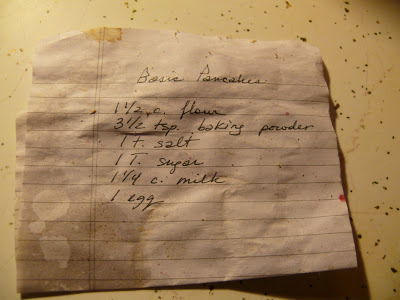 Basic Pancakes
1 1/2 c. flour
3 1/2 tsp. baking powder
1 t. salt
1 T. sugar
1 1/4 c. milk
1 egg